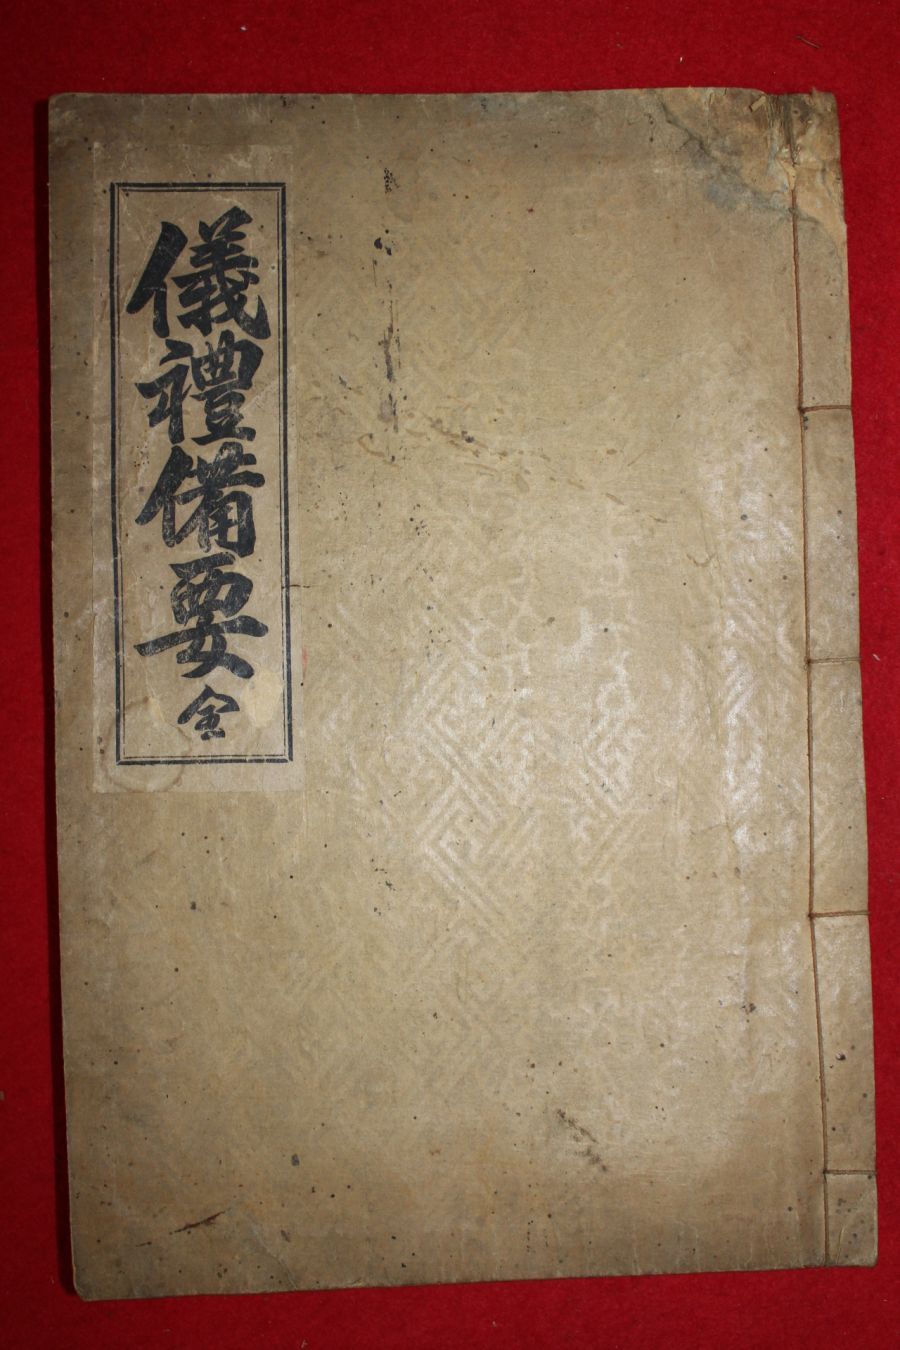 儀禮備要全